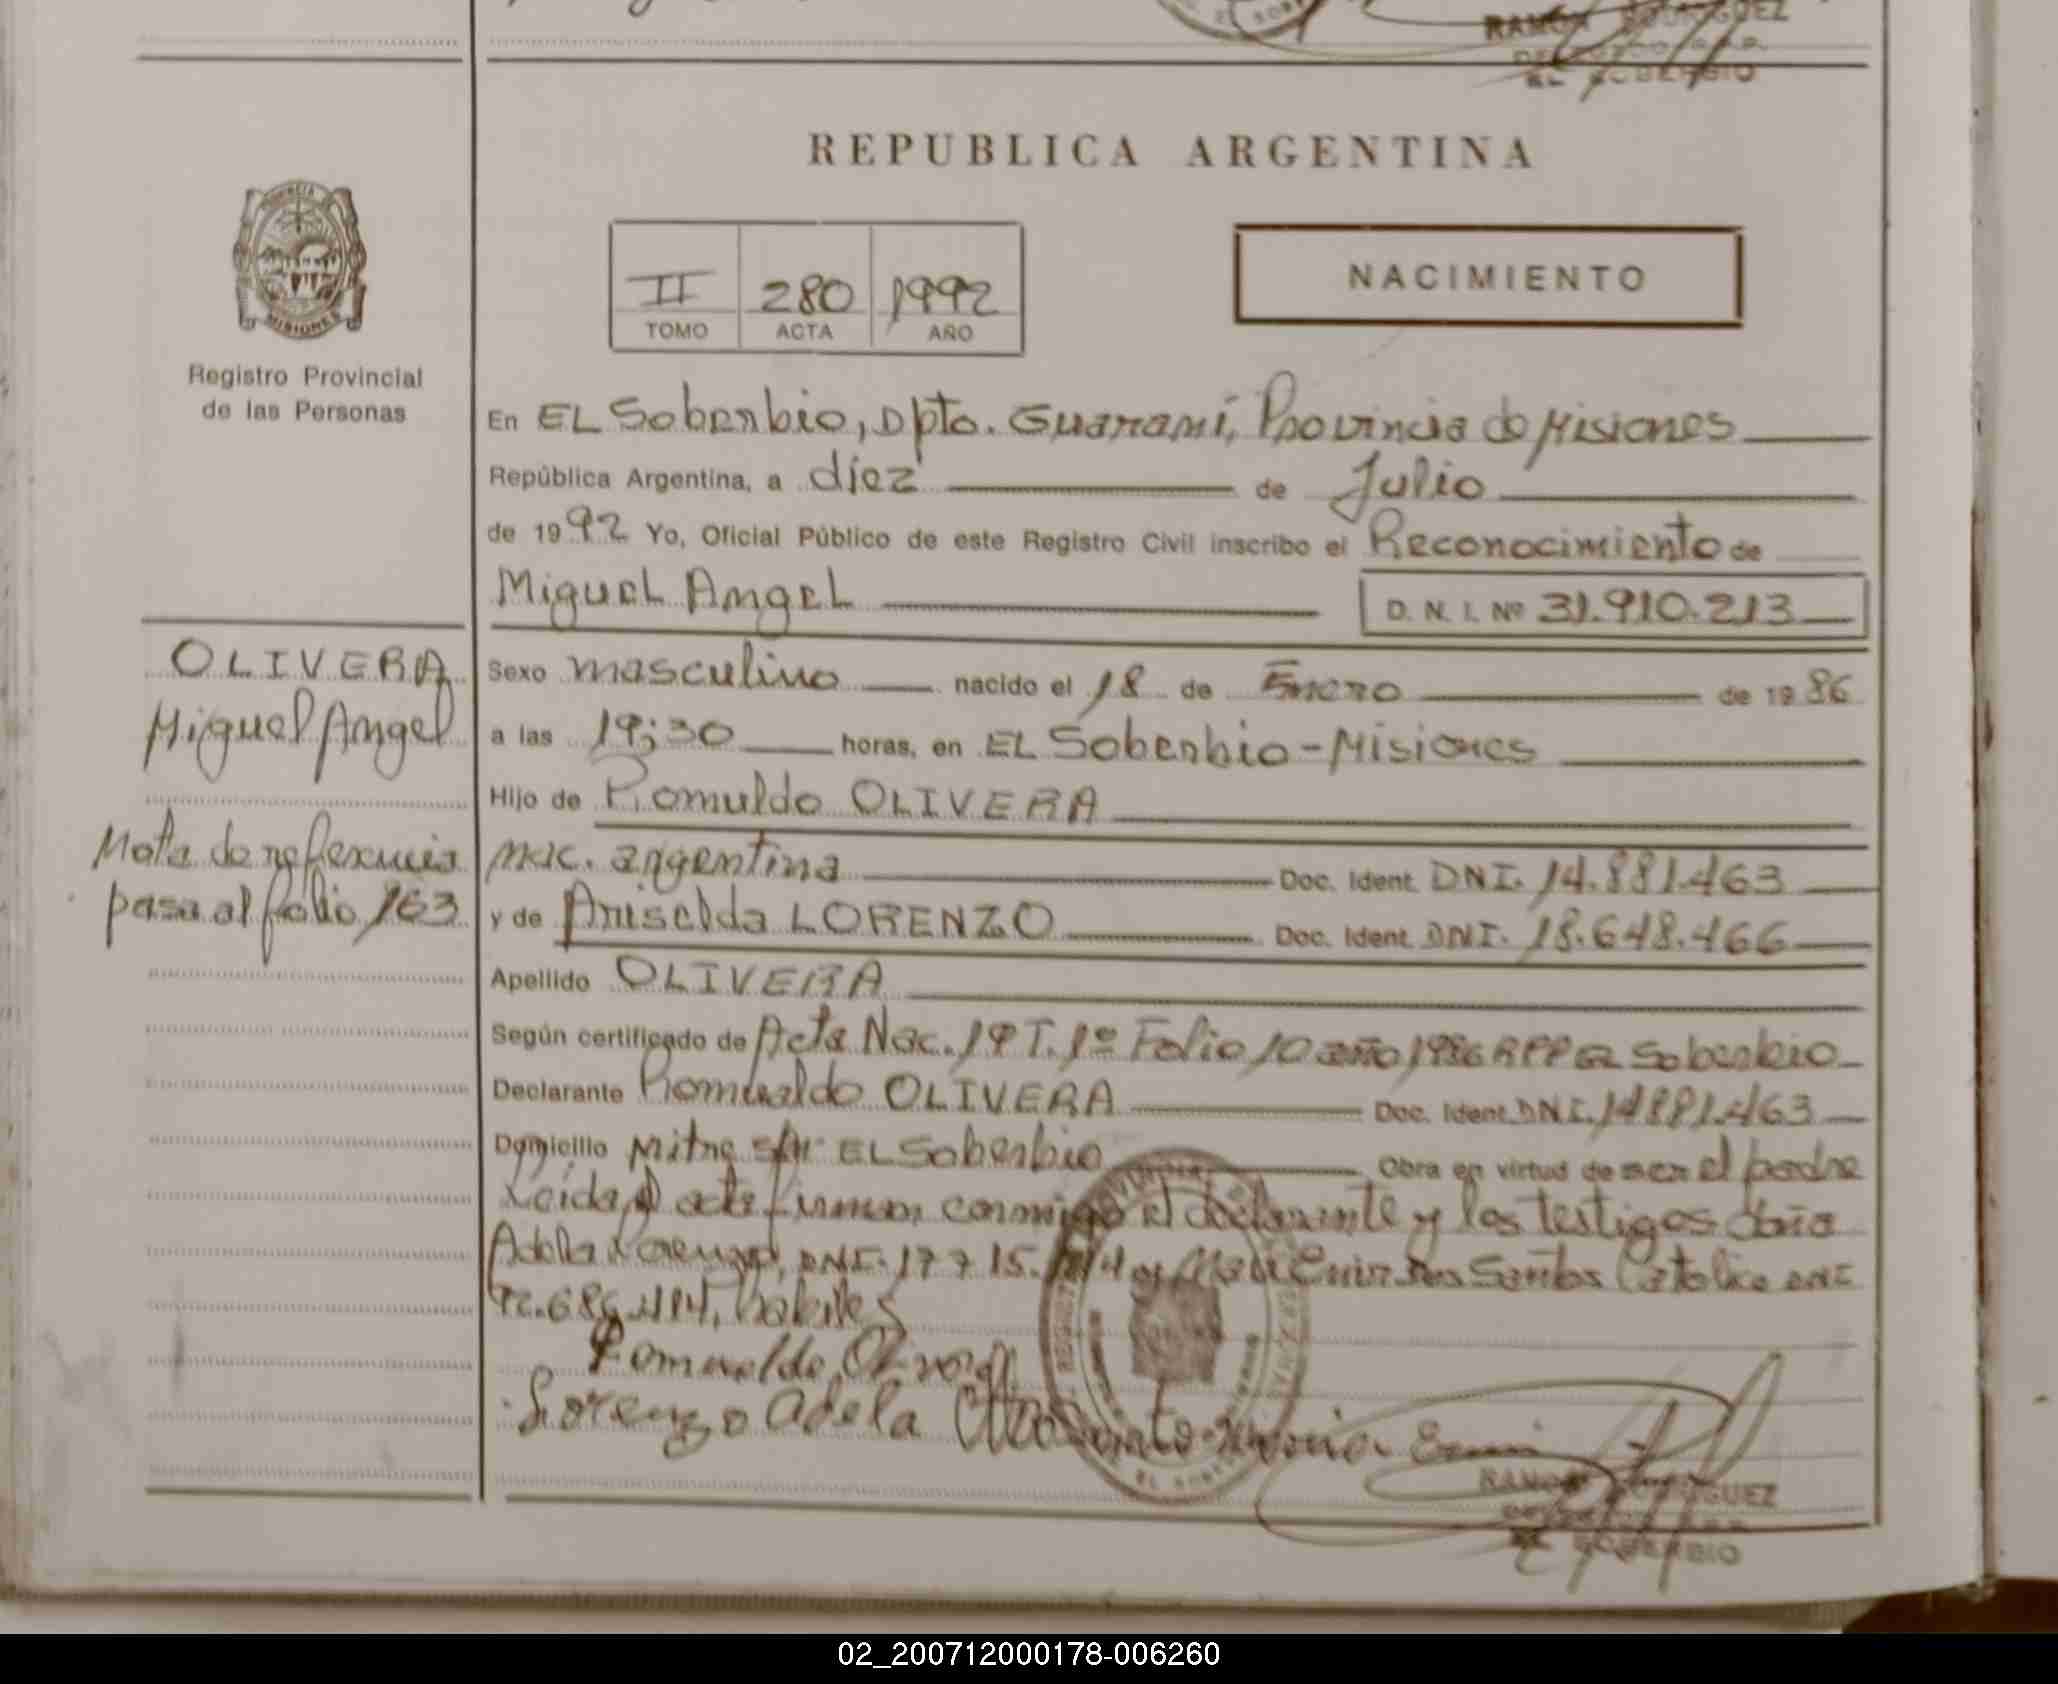 RAMON RODRIGUEZ
EL SOBERBIO
REPUBLICA ARGENTINA
MISIONES
Registro Provincial
de las Personas
II 280 1992
TOMO ACTA AÑO
NACIMIENTO
En EL Soberbio, Dpto. Guaraní, Provincia de Misiones
República Argentina, a diez de Julio
de 1992 Yo, Oficial Público de este Registro Civil inscribo el Reconocimiento de
Miguel Angel D. N. I. Nº 31.910.213
OLIVERA
Miguel Angel
Nota de referencia
pasa al folio 163
Sexo masculino nacido el 18 de Enero de 1986
a las 19:30 horas, en EL Soberbio-Misiones
Hijo de Romuldo OLIVERA
nac. argentina Doc. Ident. DNI. 14.881.463
y de Ariselda LORENZO Doc. Ident. DNI. 18.648.466
Apellido OLIVERA
Según certificado de Acta Nac. 19 T. 1º Folio 10 año 1986 RPP EL Soberbio
Declarante Romualdo OLIVERA Doc. Ident. DNI. 14881.463
Domicilio Mitre s/n EL Soberbio Obra en virtud de ser el padre
Leida el acta firman conmigo el declarante y los testigos doña
Adela Lorenzo, DNI. 17.715. y dos Santos Catolico DNI
habiles
Romualdo Olivera
Lorenzo Adela
RAMON RODRIGUEZ
EL SOBERBIO
02_200712000178-006260